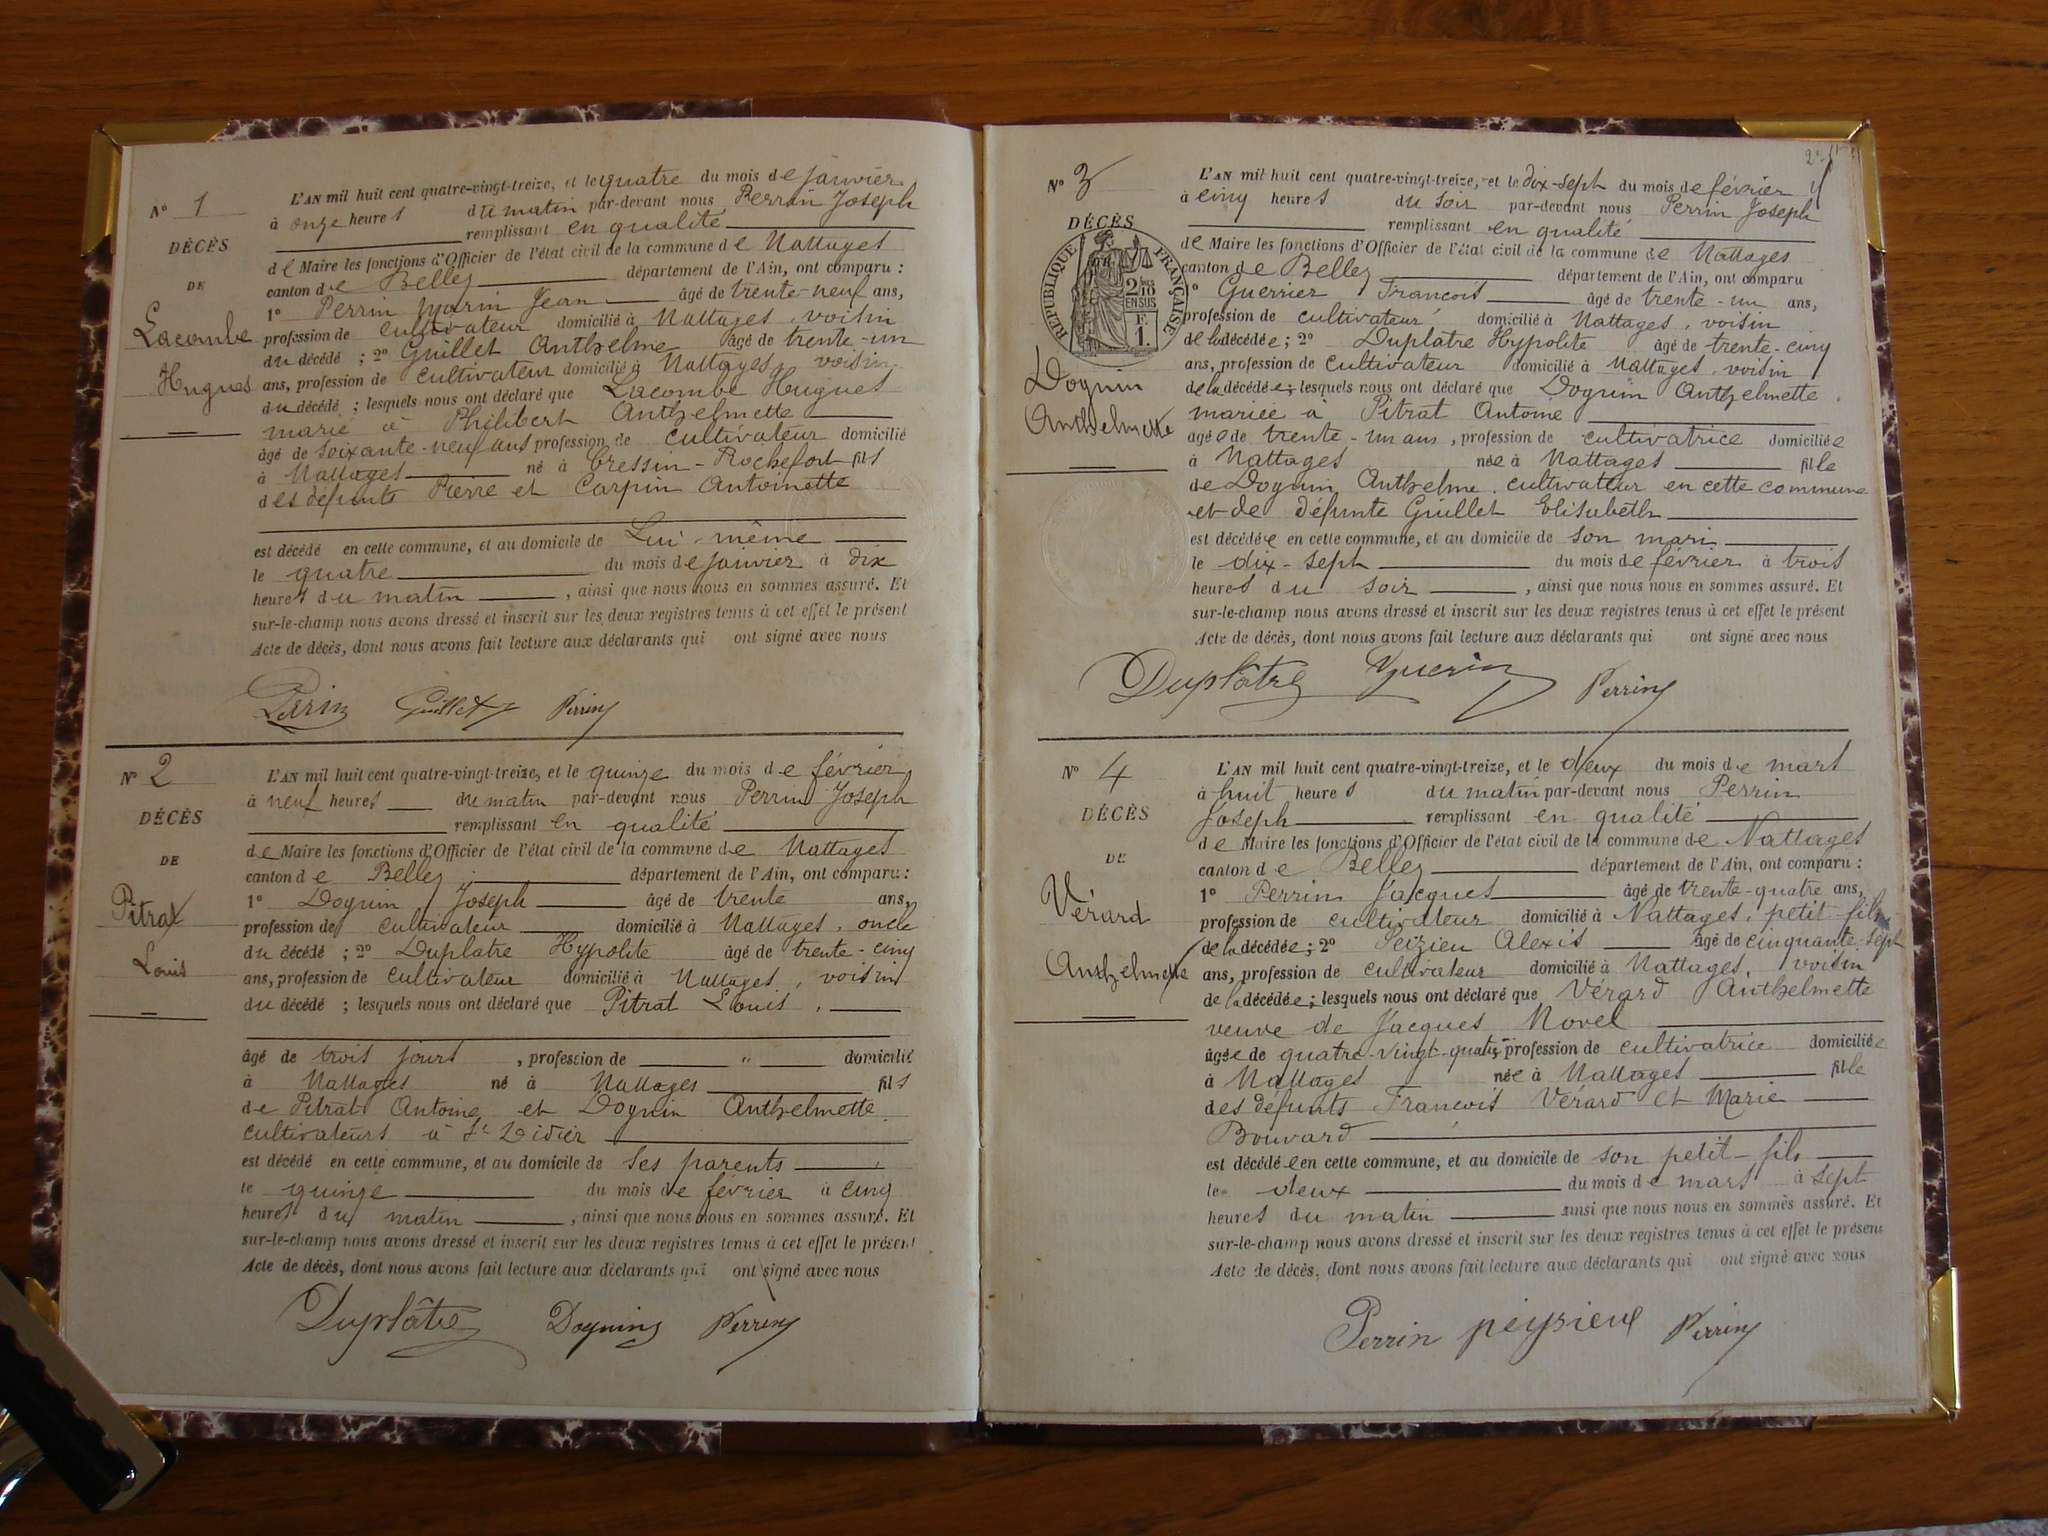 N° 1
DÉCÈS
DE
Lacombe
Hugues
L'AN mil huit cent quatre-vingt-treize, et le quatre du mois de janvier
à onze heures du matin par-devant nous Perrin Joseph
remplissant en qualité
de Maire les fonctions d'Officier de l'état civil de la commune de Nattages
canton de Belley département de l'Ain, ont comparu :
1° Perrin Marin Jean âgé de trente-neuf ans,
profession de cultivateur domicilié à Nattages, voisin
du décédé ; 2° Guillet Anthelme âgé de trente-un
ans, profession de cultivateur domicilié à Nattages, voisin
du décédé ; lesquels nous ont déclaré que Lacombe Hugues
marié à Philibert Anthelmette
âgé de soixante-neuf ans profession de cultivateur domicilié
à Nattages né à Cressin-Rochefort fils
des défunts Pierre et Carpin Antoinette
est décédé en cette commune, et au domicile de Lui-même
le quatre du mois de janvier à dix
heures du matin , ainsi que nous nous en sommes assuré. Et
sur-le-champ nous avons dressé et inscrit sur les deux registres tenus à cet effet le présent
Acte de décès, dont nous avons fait lecture aux déclarants qui ont signé avec nous
Perin Guillet Perrin
N° 2
DÉCÈS
DE
Pitrat
Louis
L'AN mil huit cent quatre-vingt-treize, et le quinze du mois de février
à neuf heures du matin par-devant nous Perrin Joseph
remplissant en qualité
de Maire les fonctions d'Officier de l'état civil de la commune de Nattages
canton de Belley département de l'Ain, ont comparu :
1° Doguin Joseph âgé de trente ans,
profession de cultivateur domicilié à Nattages, oncle
du décédé ; 2° Duplatre Hypolite âgé de trente-cinq
ans, profession de cultivateur domicilié à Nattages, voisin
du décédé ; lesquels nous ont déclaré que Pitrat Louis,
âgé de trois jours , profession de " domicilié
à Nattages né à Nattages fils
de Pitrat Antoine et Doguin Anthelmette
cultivateurs à St Didier
est décédé en cette commune, et au domicile de ses parents
le quinze du mois de février à cinq
heures du matin , ainsi que nous nous en sommes assuré. Et
sur-le-champ nous avons dressé et inscrit sur les deux registres tenus à cet effet le présent
Acte de décès, dont nous avons fait lecture aux déclarants qui ont signé avec nous
Duplâtre Doguin Perrin
N° 3
DÉCÈS
RÉPUBLIQUE FRANÇAISE
2/10
EN SUS
F.
1.
Doguin
Anthelmette
L'AN mil huit cent quatre-vingt-treize, et le dix-sept du mois de février
à cinq heures du soir par-devant nous Perrin Joseph
remplissant en qualité
de Maire les fonctions d'Officier de l'état civil de la commune de Nattages
canton de Belley département de l'Ain, ont comparu
1° Guerrier François âgé de trente-un ans,
profession de cultivateur domicilié à Nattages, voisin
de la décédée ; 2° Duplâtre Hypolite âgé de trente-cinq
ans, profession de cultivateur domicilié à Nattages, voisin
de la décédée ; lesquels nous ont déclaré que Doguin Anthelmette
mariée à Pitrat Antoine
âgée de trente-un ans, profession de cultivatrice domiciliée
à Nattages née à Nattages fille
de Doguin Anthelme cultivateur en cette commune
et de défunte Guillet Elisabeth
est décédée en cette commune, et au domicile de son mari
le dix-sept du mois de février à trois
heures du soir , ainsi que nous nous en sommes assuré. Et
sur-le-champ nous avons dressé et inscrit sur les deux registres tenus à cet effet le présent
Acte de décès, dont nous avons fait lecture aux déclarants qui ont signé avec nous
Duplâtre Perrin
N° 4
DÉCÈS
DE
Vérard
Anthelmette
L'AN mil huit cent quatre-vingt-treize, et le deux du mois de mars
à huit heures du matin par-devant nous Perrin
Joseph remplissant en qualité
de Maire les fonctions d'Officier de l'état civil de la commune de Nattages
canton de Belley département de l'Ain, ont comparu :
1° Perrin Jacques âgé de trente-quatre ans,
profession de cultivateur domicilié à Nattages, petit-fils
de la décédée ; 2° Peizieu Alexis âgé de cinquante-sept
ans, profession de cultivateur domicilié à Nattages, voisin
de la décédée ; lesquels nous ont déclaré que Vérard Anthelmette
veuve de Jacques Novel
âgée de quatre-vingt-quatre profession de cultivatrice domiciliée
à Nattages née à Nattages fille
des défunts François Vérard et Marie
Bouvard
est décédée en cette commune, et au domicile de son petit-fils
le deux du mois de mars à sept
heures du matin ainsi que nous nous en sommes assuré. Et
sur-le-champ nous avons dressé et inscrit sur les deux registres tenus à cet effet le présent
Acte de décès, dont nous avons fait lecture aux déclarants qui ont signé avec nous
Perrin peysieux Perrin